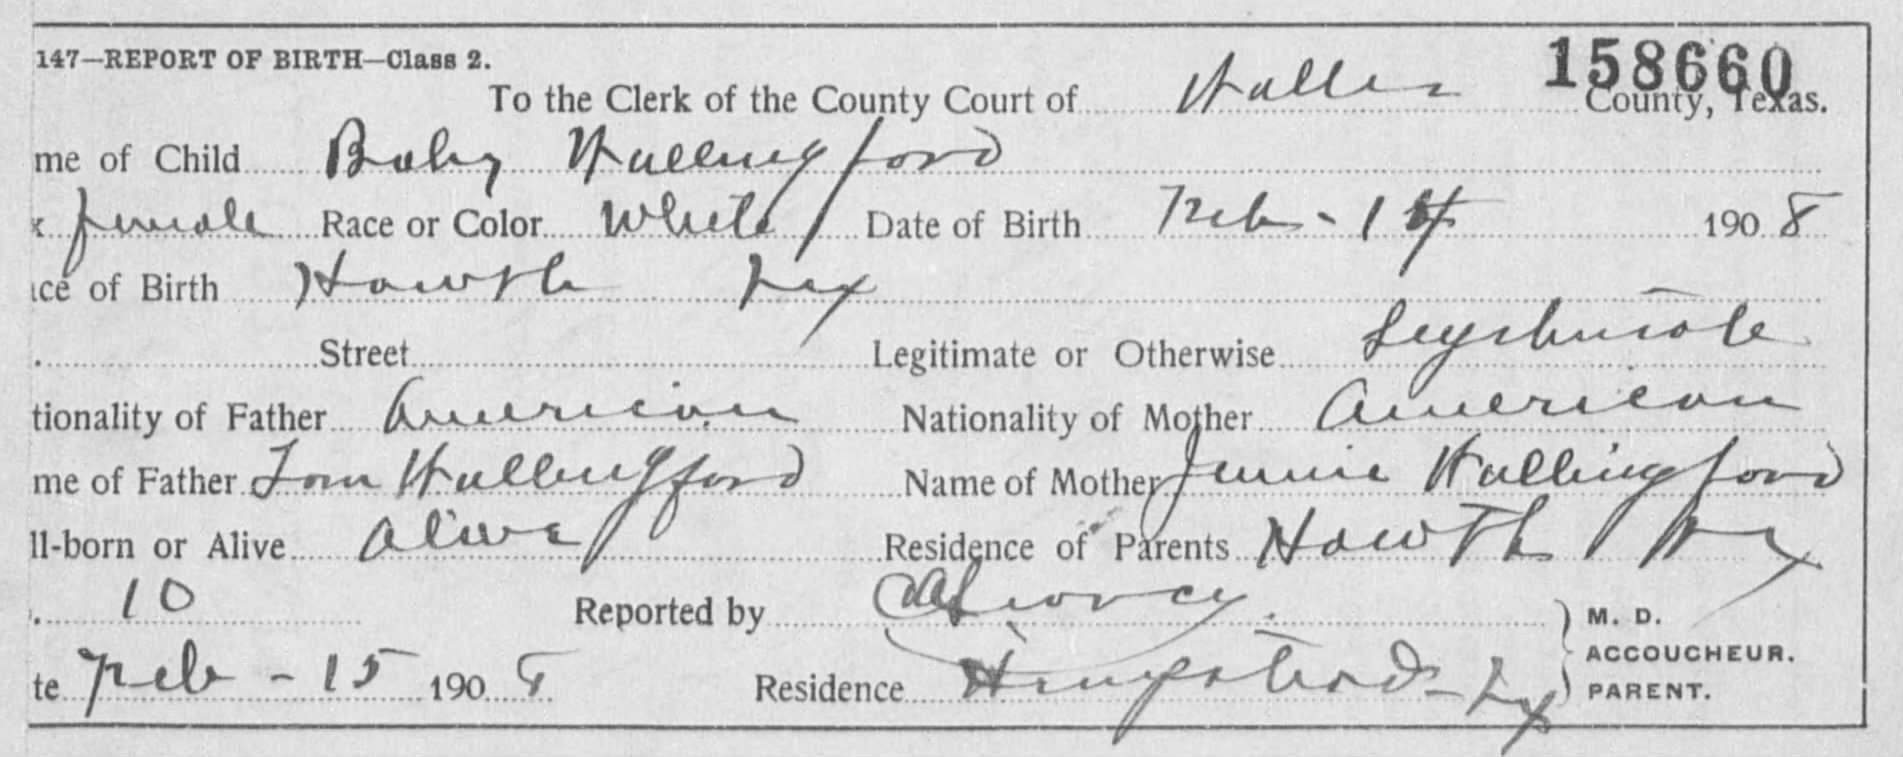 147—REPORT OF BIRTH—Class 2. 158660
To the Clerk of the County Court of Waller County, Texas.
me of Child Baby Wallingford
x female Race or Color White Date of Birth Feb - 14 1908
ace of Birth Howth Tex
Street Legitimate or Otherwise Legitimate
tionality of Father American Nationality of Mother American
me of Father Tom Wallingford Name of Mother Jennie Wallingford
ll-born or Alive alive Residence of Parents Howth Tex
. 10 Reported by M. D.
ACCOUCHEUR.
te Feb - 15 1908 Residence Hempstead - Tex PARENT.